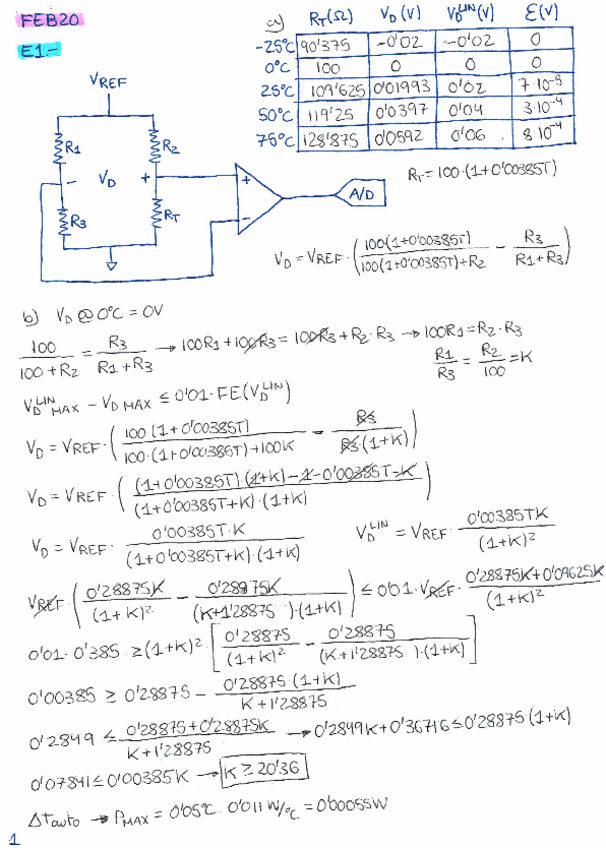 FEB20
E1-
a) RT(Ω) VD(V) VDLIN(V) Ɛ(V)
-25ºC 90'375 -0'02 -0'02 0
0ºC 100 0 0 0
25ºC 109'625 0'01993 0'02 7·10-5
50ºC 119'25 0'0397 0'04 3·10-4
75ºC 128'875 0'0592 0'06 8·10-4
VREF
R1 R2
- VD + + A/D
R3 RT -
RT = 100·(1+0'00385T)
VD = VREF · (100(1+0'00385T) / 100(1+0'00385T)+R2 - R3 / R1+R3)
b) VD @ 0ºC = 0V
100 / 100+R2 = R3 / R1+R3 → 100R1 + 100R3 = 100R3 + R2·R3 → 100R1 = R2·R3
R1 / R3 = R2 / 100 = K
VDLIN MAX - VD MAX ≤ 0'01·FE(VDLIN)
VD = VREF · (100(1+0'00385T) / 100·(1+0'00385T)+100K - R3 / R3·(1+K))
VD = VREF · ((1+0'00385T)·(1+K)-1-0'00385T-K / (1+0'00385T+K)·(1+K))
VD = VREF · 0'00385T·K / (1+0'00385T+K)·(1+K) VDLIN = VREF · 0'00385TK / (1+K)2
VREF · (0'28875K / (1+K)2 - 0'28875K / (K+1'28875)·(1+K)) ≤ 0'01·VREF · 0'28875K+0'09625K / (1+K)2
0'01·0'385 ≥ (1+K)2 · [0'28875 / (1+K)2 - 0'28875 / (K+1'28875)·(1+K)]
0'00385 ≥ 0'28875 - 0'28875(1+K) / K+1'28875
0'2849 ≤ 0'28875+0'28875K / K+1'28875 → 0'2849K+0'36716 ≤ 0'28875(1+K)
0'07841 ≤ 0'00385K → K ≥ 20'36
ΔTauto → PMAX = 0'05ºC · 0'011 W/ºC = 0'00055W
1